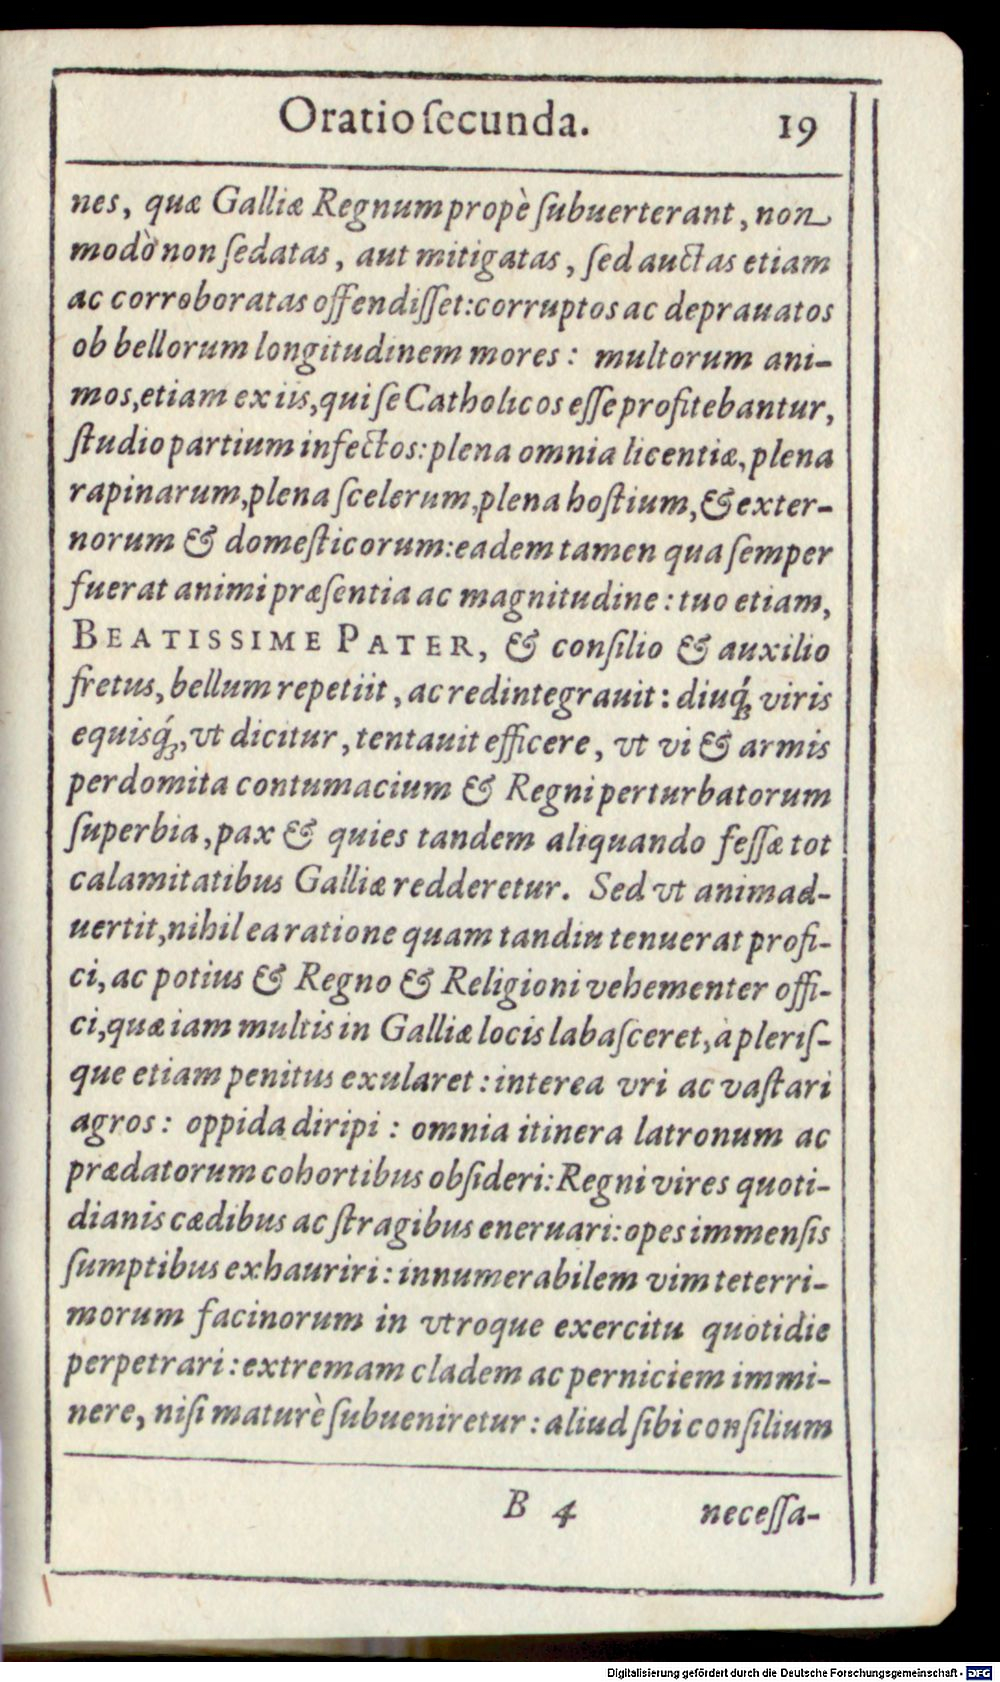 Oratio ſecunda. 19
nes, quæ Galliæ Regnum propè ſubuerterant, non
modò non ſedatas, aut mitigatas, ſed auctas etiam
ac corroboratas offendiſſet: corruptos ac deprauatos
ob bellorum longitudinem mores: multorum ani-
mos, etiam ex iis, qui ſe Catholicos eſſe profitebantur,
ſtudio partium infectos: plena omnia licentiæ, plena
rapinarum, plena ſcelerum, plena hoſtium, & exter-
norum & domeſticorum: eadem tamen qua ſemper
fuerat animi præſentia ac magnitudine: tuo etiam,
BEATISSIME PATER, & conſilio & auxilio
fretus, bellum repetiit, ac redintegrauit: diuq́; viris
equisq́;, vt dicitur, tentauit efficere, vt vi & armis
perdomita contumacium & Regni perturbatorum
ſuperbia, pax & quies tandem aliquando feſſæ tot
calamitatibus Galliæ redderetur. Sed vt animad-
uertit, nihil ea ratione quam tandiu tenuerat profi-
ci, ac potius & Regno & Religioni vehementer offi-
ci, quæ iam multis in Galliæ locis labaſceret, à pleriſ-
que etiam penitus exularet: interea vri ac vaſtari
agros: oppida diripi: omnia itinera latronum ac
prædatorum cohortibus obſideri: Regni vires quoti-
dianis cædibus ac ſtragibus eneruari: opes immenſis
ſumptibus exhauriri: innumerabilem vim teterri-
morum facinorum in vtroque exercitu quotidie
perpetrari: extremam cladem ac perniciem immi-
nere, niſi maturè ſubueniretur: aliud ſibi conſilium
B 4 neceſſa-
Digitalisierung gefördert durch die Deutsche Forschungsgemeinschaft - DFG